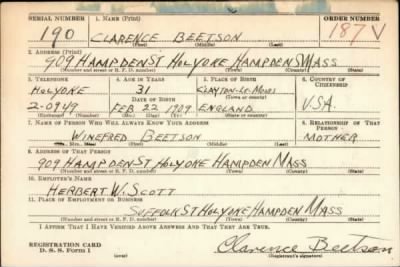 SERIAL NUMBER 1. NAME (Print) ORDER NUMBER
190 CLARENCE BEETSON 187 V
(First) (Middle) (Last)
2. ADDRESS (Print)
909 HAMPDEN ST HOLYOKE HAMPDEN MASS
(Number and street or R. F. D. number) (Town) (County) (State)
3. TELEPHONE 4. AGE IN YEARS 5. PLACE OF BIRTH 6. COUNTRY OF CITIZENSHIP
HOLYOKE 31 CLAYTON-LE-MOORS
DATE OF BIRTH (Town or county)
2-0949 FEB 22 1909 ENGLAND U.S.A.
7. NAME OF PERSON WHO WILL ALWAYS KNOW YOUR ADDRESS 8. RELATIONSHIP OF THAT PERSON
WINEFRED BEETSON MOTHER
(First) (Middle) (Last)
9. ADDRESS OF THAT PERSON
909 HAMPDEN ST HOLYOKE HAMPDEN MASS
(Number and street or R. F. D. number) (Town) (County) (State)
10. EMPLOYER'S NAME
HERBERT W. SCOTT
11. PLACE OF EMPLOYMENT OR BUSINESS
SUFFOLK ST HOLYOKE HAMPDEN MASS
(Number and street or R. F. D. number) (Town) (County) (State)
I AFFIRM THAT I HAVE VERIFIED ABOVE ANSWERS AND THAT THEY ARE TRUE.
REGISTRATION CARD
D. S. S. Form 1 (over) Clarence Beetson
(Registrant's signature)